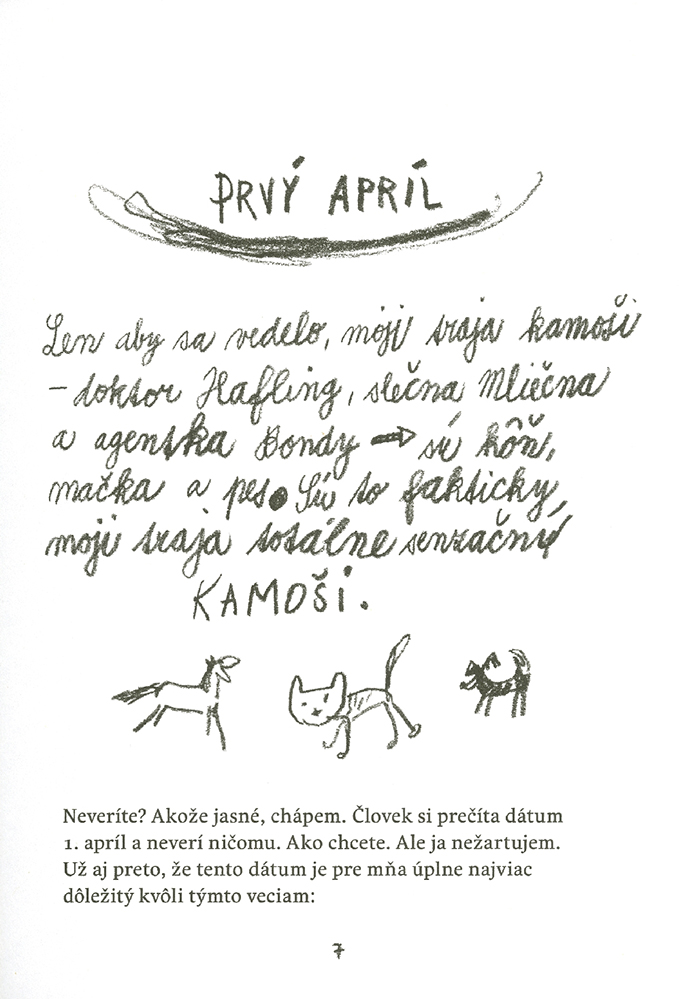 PRVÝ APRÍL
Len aby sa vedelo, moji traja kamoši
– doktor Hafling, slečna Mliečna
a agentka Bondy → sú kôň,
mačka a pes. Sú to fakticky,
moji traja totálne senzačný
KAMOŠI.
Neveríte? Akože jasné, chápem. Človek si prečíta dátum
1. apríl a neverí ničomu. Ako chcete. Ale ja nežartujem.
Už aj preto, že tento dátum je pre mňa úplne najviac
dôležitý kvôli týmto veciam:
7